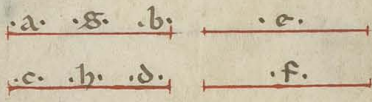 .a. .g. .b. .e.
.c. .h. .d. .f.